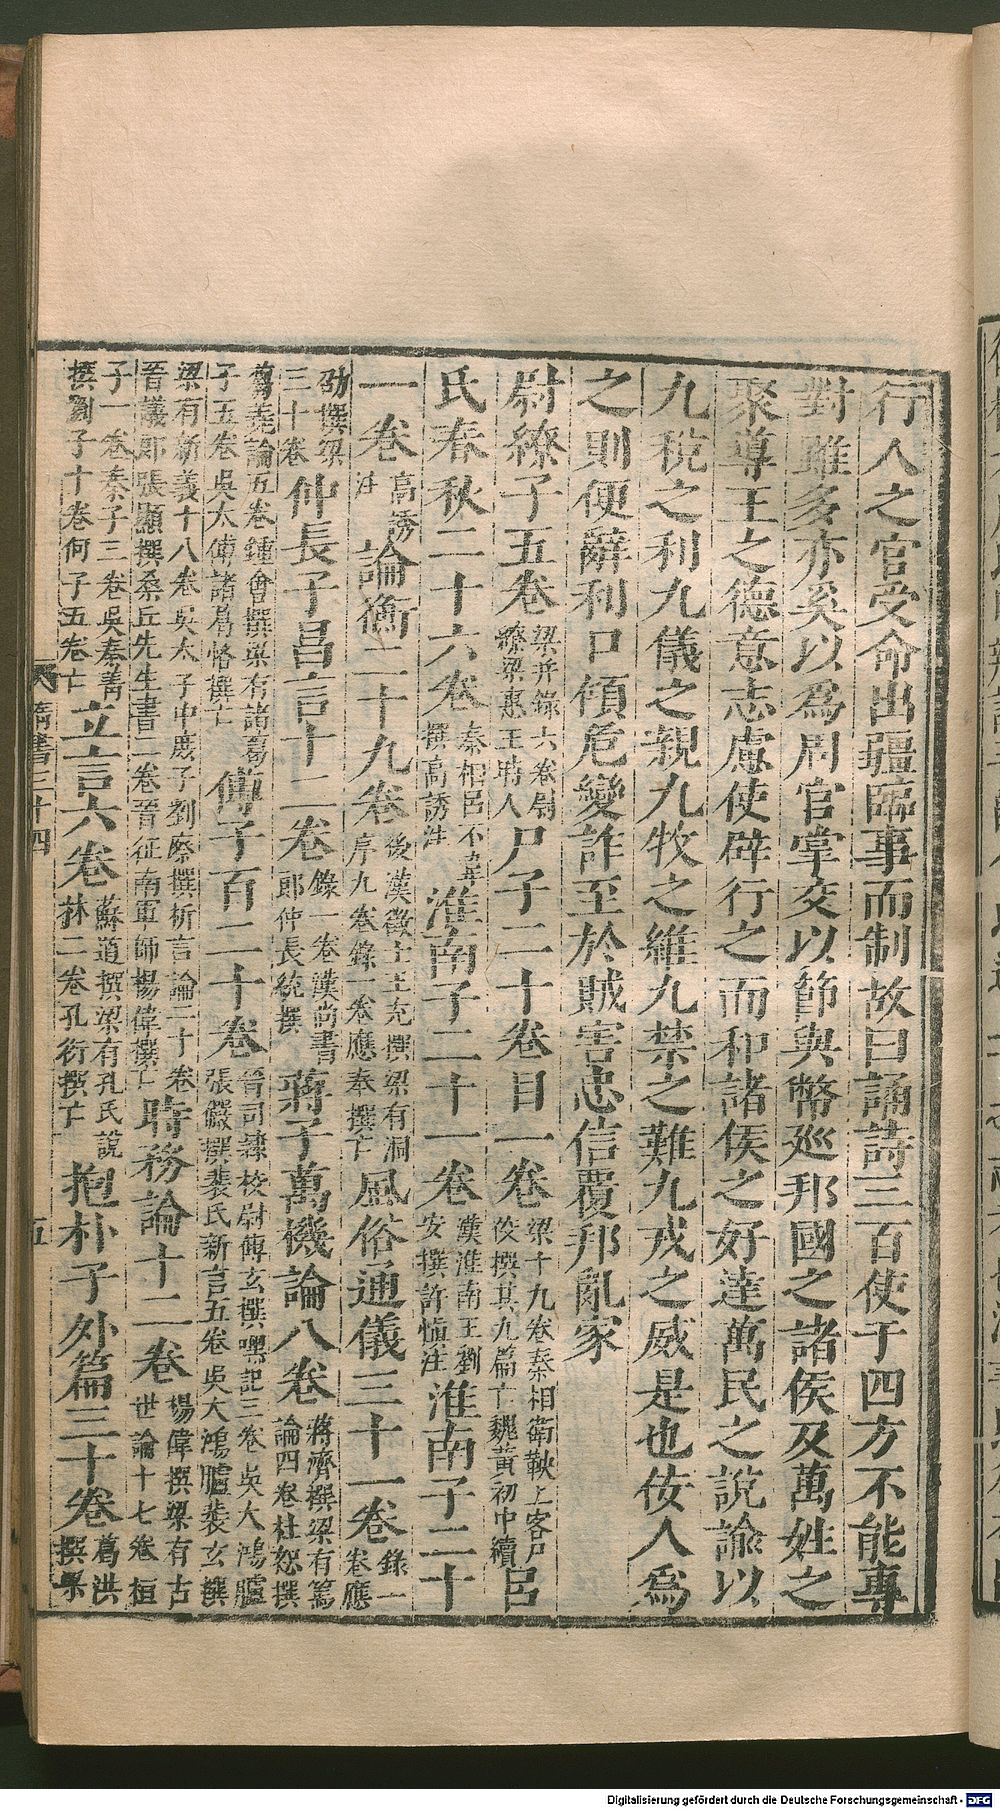 行人之官受命出疆臨事而制故曰誦詩三百使于四方不能專
對雖多亦奚以爲周官掌交以節與幣巡邦國之諸侯及萬姓之
聚導王之德意志慮使辟行之而和諸侯之好達萬民之說諭以
九稅之利九儀之親九牧之維九禁之難九戎之威是也佞人爲
之則便辭利口傾危變詐至於賊害忠信覆邦亂家
尉繚子五卷梁并錄六卷尉繚梁惠王時人尸子二十卷目一卷梁十九卷秦相衛鞅上客尸佼撰其九篇亡魏黃初中續呂
氏春秋二十六卷秦相呂不韋撰高誘注淮南子二十一卷漢淮南王劉安撰許愼注淮南子二十
一卷高誘注論衡二十九卷後漢徵士王充撰梁有洞序九卷錄一卷應奉撰亡風俗通儀三十一卷錄一卷應
劭撰梁三十卷仲長子昌言十二卷錄一卷漢尚書郎仲長統撰蔣子萬機論八卷蔣濟撰梁有篤論四卷杜恕撰
芻蕘論五卷鍾會撰梁有諸葛子五卷吳太傅諸葛恪撰亡傅子百二十卷晉司隸校尉傅玄撰嘿記三卷吳大鴻臚張儼撰裴氏新言五卷吳大鴻臚裴玄撰
梁有新義十八卷吳太子中庶子劉廞撰析言論二十卷晉議郎張顯撰桑丘先生書二卷晉征南軍師楊偉撰亡時務論十二卷楊偉撰梁有古世論十七卷桓
子一卷秦子三卷吳秦菁撰劉子十卷何子五卷亡立言六卷蘇道撰梁有孔氏說林二卷孔衍撰亡抱朴子外篇三十卷葛洪撰梁
隋書三十四
五
Digitalisierung gefördert durch die Deutsche Forschungsgemeinschaft - DFG